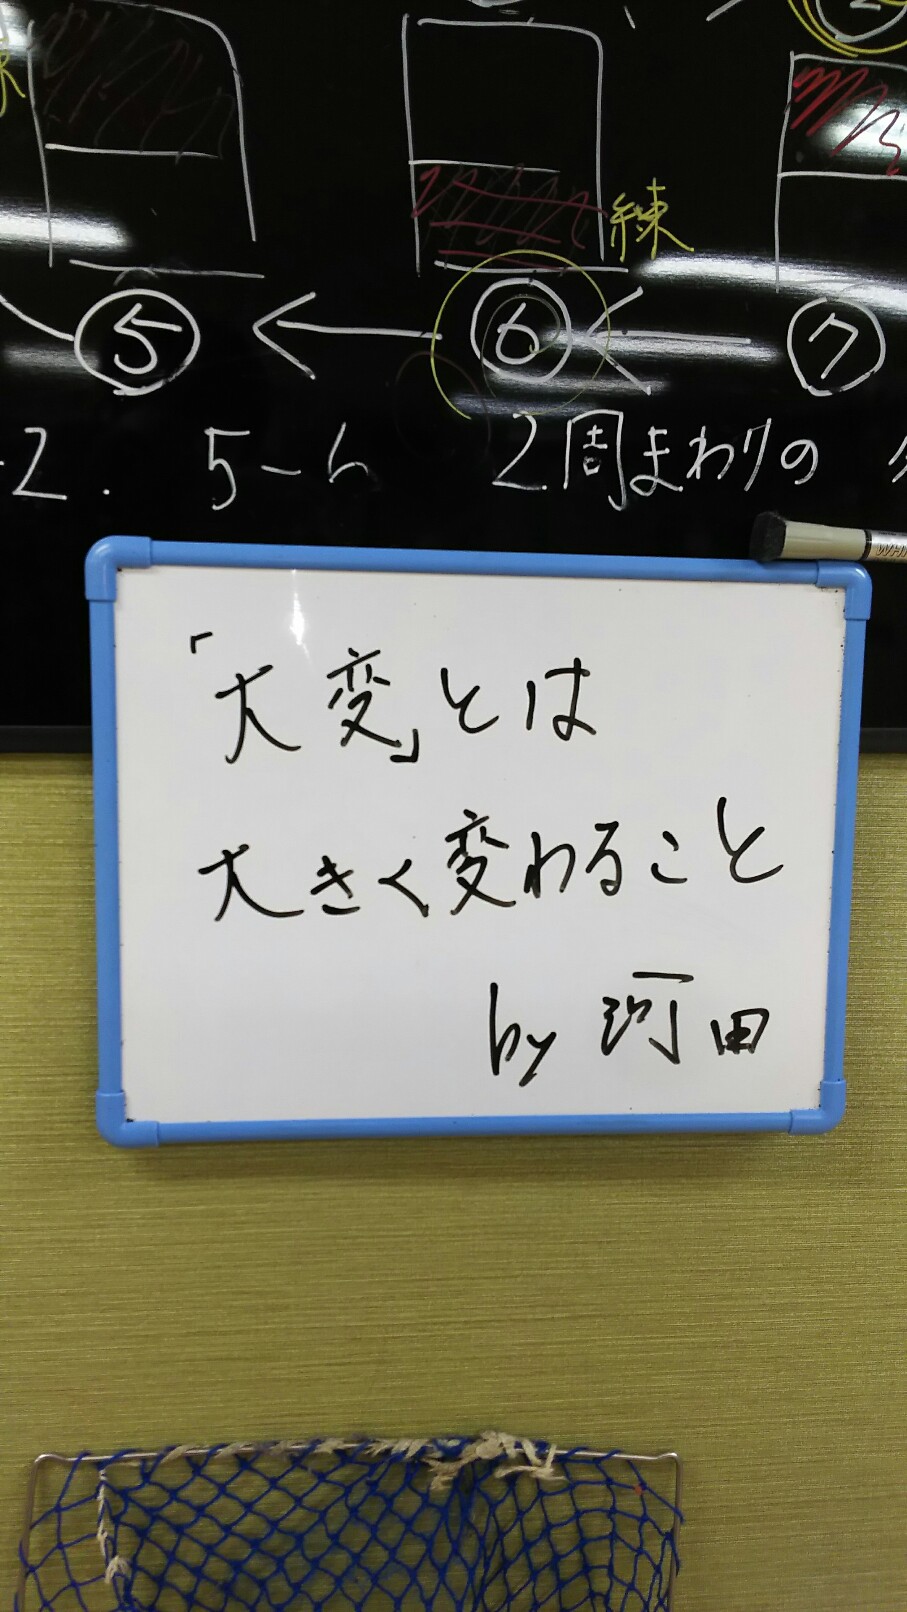 練
5 ← 6 ← 7
2. 5-6 2周まわりの
WHI
「大変」とは
大きく変わること
by 河田